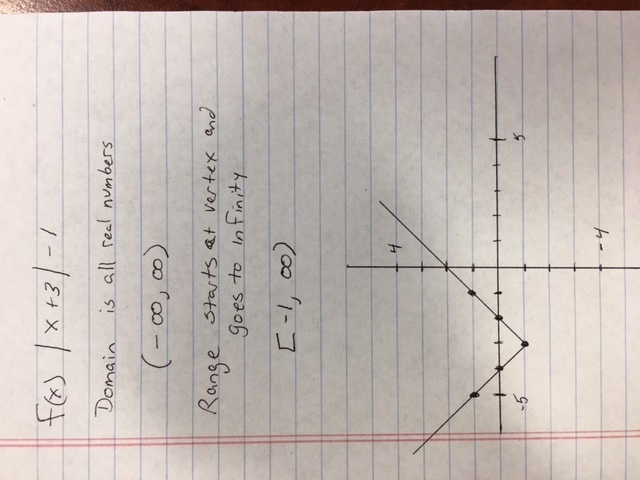 f(x) |x+3|-1
Domain is all real numbers
(-∞, ∞)
Range starts at vertex and
goes to Infinity
[-1, ∞)
4
-5
5
-4